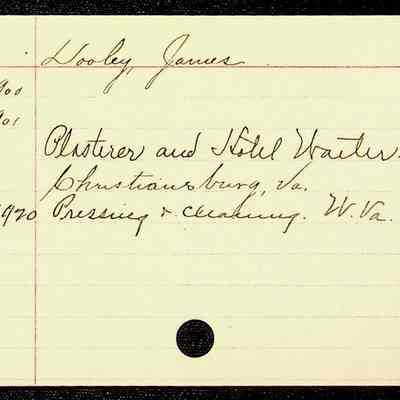 Dooley, James
900
901
Plasterer and Hotel Waiter.
Christiansburg, Va.
1920 Pressing & cleaning. W. Va.